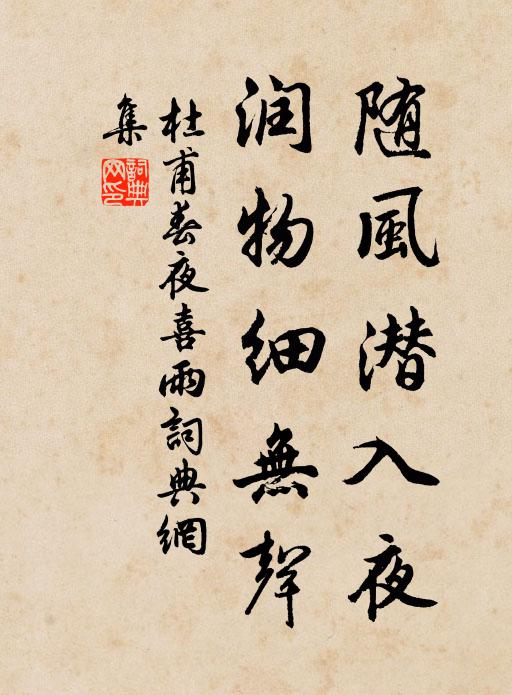 随風潜入夜
润物细無聲
杜甫春夜喜雨詞典網
集
詞典網印